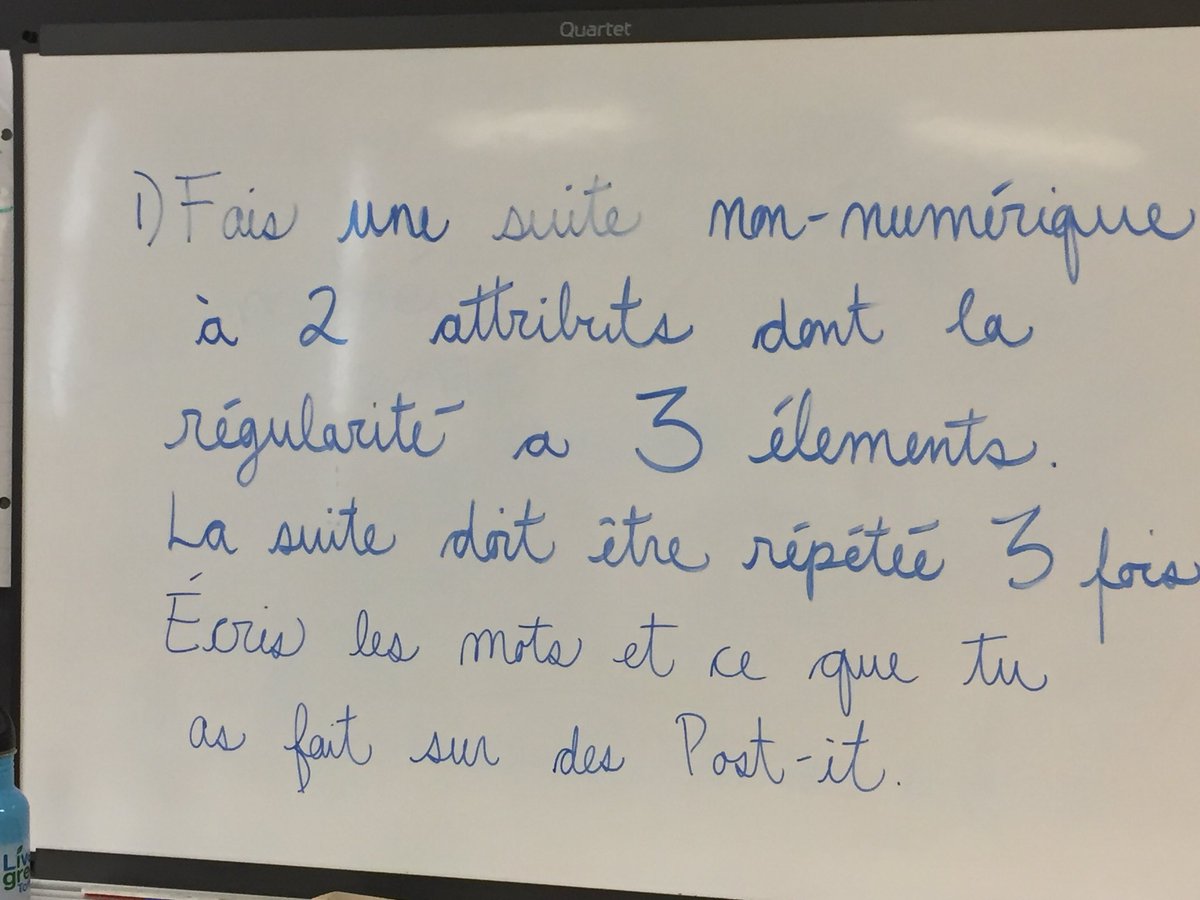 Quartet
1) Fais une suite non-numérique
à 2 attributs dont la
régularité a 3 élements.
La suite doit être répétéé 3 fois
Écris les mots et ce que tu
as fait sur des Post-it.
Liv
gre